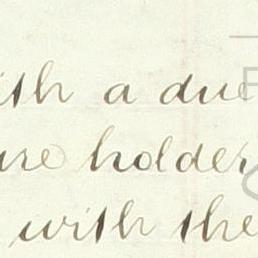 ith a due
ure holder
with the